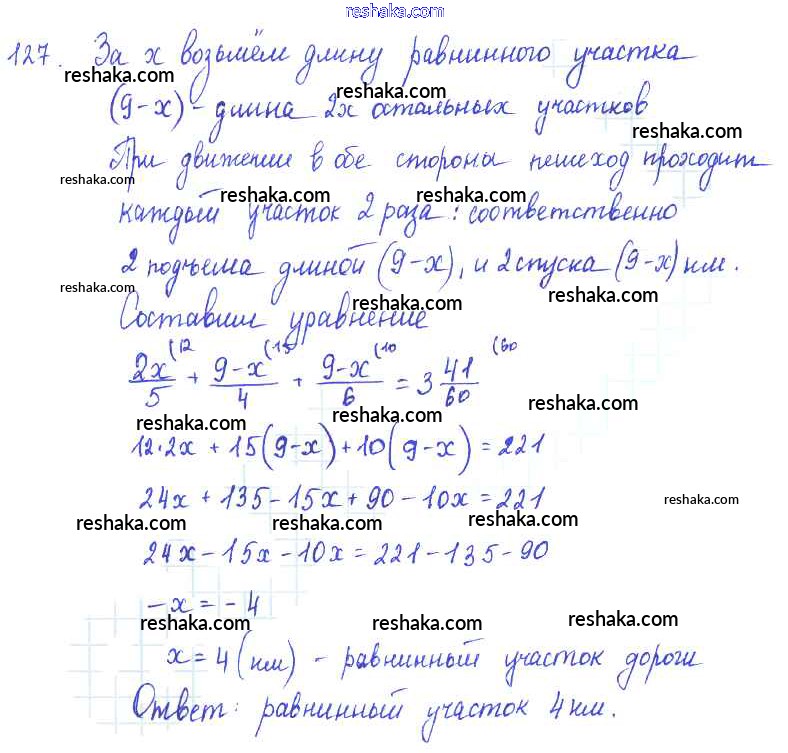 reshaka.com
127. За x возьмём длину равнинного участка
reshaka.com reshaka.com
(9-x) - длина 2х остальных участков
reshaka.com
При движении в обе стороны пешеход проходит
reshaka.com reshaka.com reshaka.com
каждый участок 2 раза: соответственно
2 подъема длиной (9-x), и 2 спуска (9-x) км.
reshaka.com reshaka.com reshaka.com
Составим уравнение
2x/5 (12 + 9-x/4 (15 + 9-x/6 (10 = 3 41/60 (60
reshaka.com reshaka.com reshaka.com
12·2x + 15(9-x) + 10(9-x) = 221
24x + 135 - 15x + 90 - 10x = 221
reshaka.com reshaka.com reshaka.com reshaka.com
24x - 15x - 10x = 221 - 135 - 90
-x = -4
reshaka.com reshaka.com reshaka.com
x = 4 (км) - равнинный участок дороги
Ответ: равнинный участок 4 км.